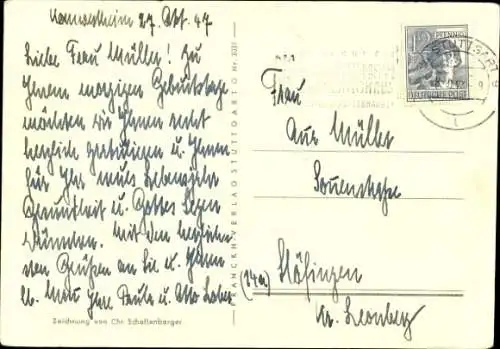 Kornwestheim 27. Okt. 47
Liebe Frau Müller! Zu
Ihrem morgigen Geburtstage
möchten wir Ihnen recht
herzlich gratulieren u. Ihnen
für Ihr neues Lebensjahr
Gesundheit u. Gottes Segen
wünschen. Mit den herzlich-
sten Grüßen an Sie u. Ihren
lb. Mann Ihre Paula u. Otto
Zeichnung von Chr. Schaffenberger
FRANCKH-VERLAG STUTTGART O Nr. 3031
12 PFENNIG
DEUTSCHE POST
STUTTGART 9
Frau
Müller
Sonnenstraße
(14a) Höfingen
Kr. Leonberg